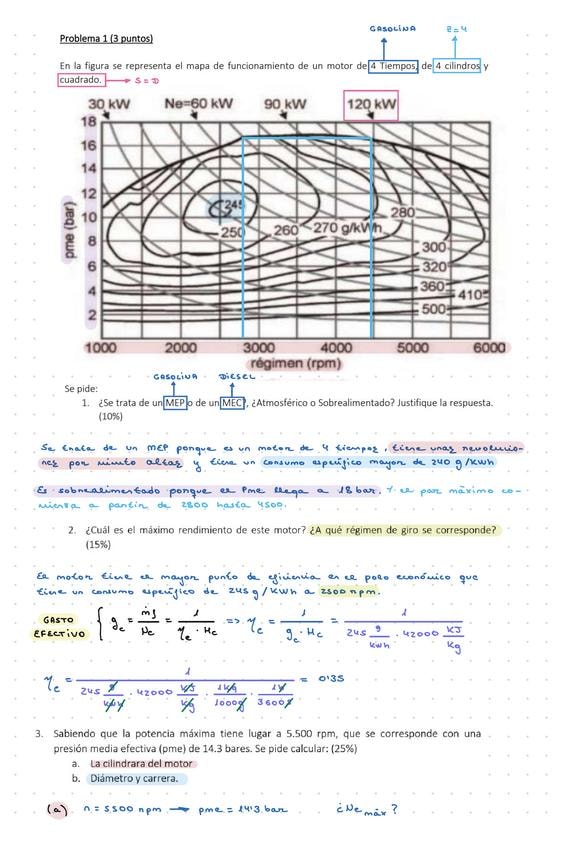 GASOLINA Z=4
Problema 1 (3 puntos)
En la figura se representa el mapa de funcionamiento de un motor de 4 Tiempos, de 4 cilindros y
cuadrado. → S=D
30 kW Ne=60 kW 90 kW 120 kW
18
16
14
12
10
8
6
4
2
pme (bar)
245
250 260 270 g/kWh 280
300
320
360 410
500
1000 2000 3000 4000 5000 6000
régimen (rpm)
GASOLINA DIESEL
Se pide:
1. ¿Se trata de un MEP o de un MEC?, ¿Atmosférico o Sobrealimentado? Justifique la respuesta.
(10%)
Se trata de un MEP porque es un motor de 4 tiempos, tiene unas revolucio-
nes por minuto altas y tiene un consumo específico mayor de 240 g/KWh
Es sobrealimentado porque el Pme llega a 18 bar. Y el par máximo co-
mienza a partir de 2800 hasta 4500.
2. ¿Cuál es el máximo rendimiento de este motor? ¿A qué régimen de giro se corresponde?
(15%)
El motor tiene el mayor punto de eficiencia en el polo económico que
tiene un consumo específico de 245 g/KWh a 2500 rpm.
GASTO EFECTIVO { ge = ṁf / Ne = 1 / ηe · Hc => ηe = 1 / ge · Hc = 1 / 245 g/kWh · 42000 KJ/Kg
ηe = 1 / 245 g/kWh · 42000 KJ/Kg · 1Kg/1000g · 1h/3600s = 0'35
3. Sabiendo que la potencia máxima tiene lugar a 5.500 rpm, que se corresponde con una
presión media efectiva (pme) de 14.3 bares. Se pide calcular: (25%)
a. La cilindrara del motor
b. Diámetro y carrera.
(a) n = 5500 rpm → pme = 14'3 bar ¿Ne máx?